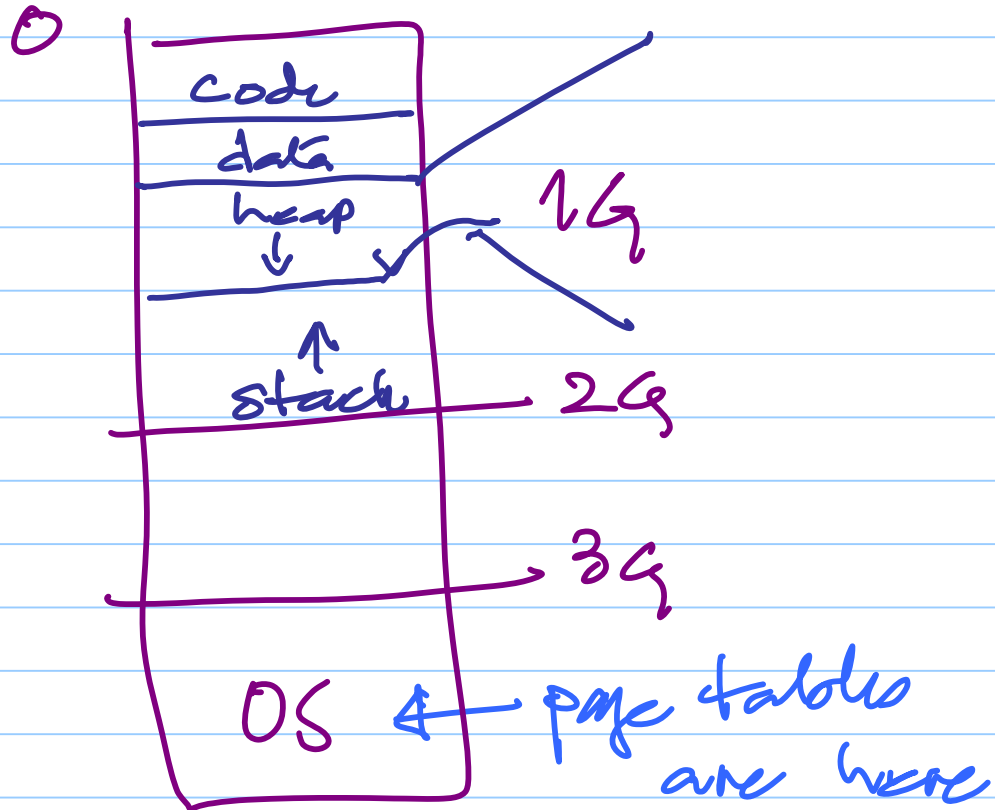 0
code
data
heap
1G
stack
2G
3G
OS
page tables
are here